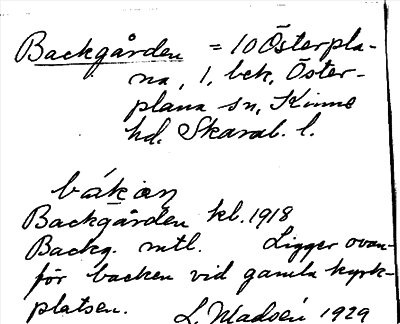 Backgården = 10 Österpla-
na, 1, bek, Öster-
plana sn, Kinne
hd. Skarab. l.
bákan
Backgården kb. 1918
Backg. mtl. Ligger ovan-
för backen vid gamla kyrk-
platsen.
L. Madsén 1929